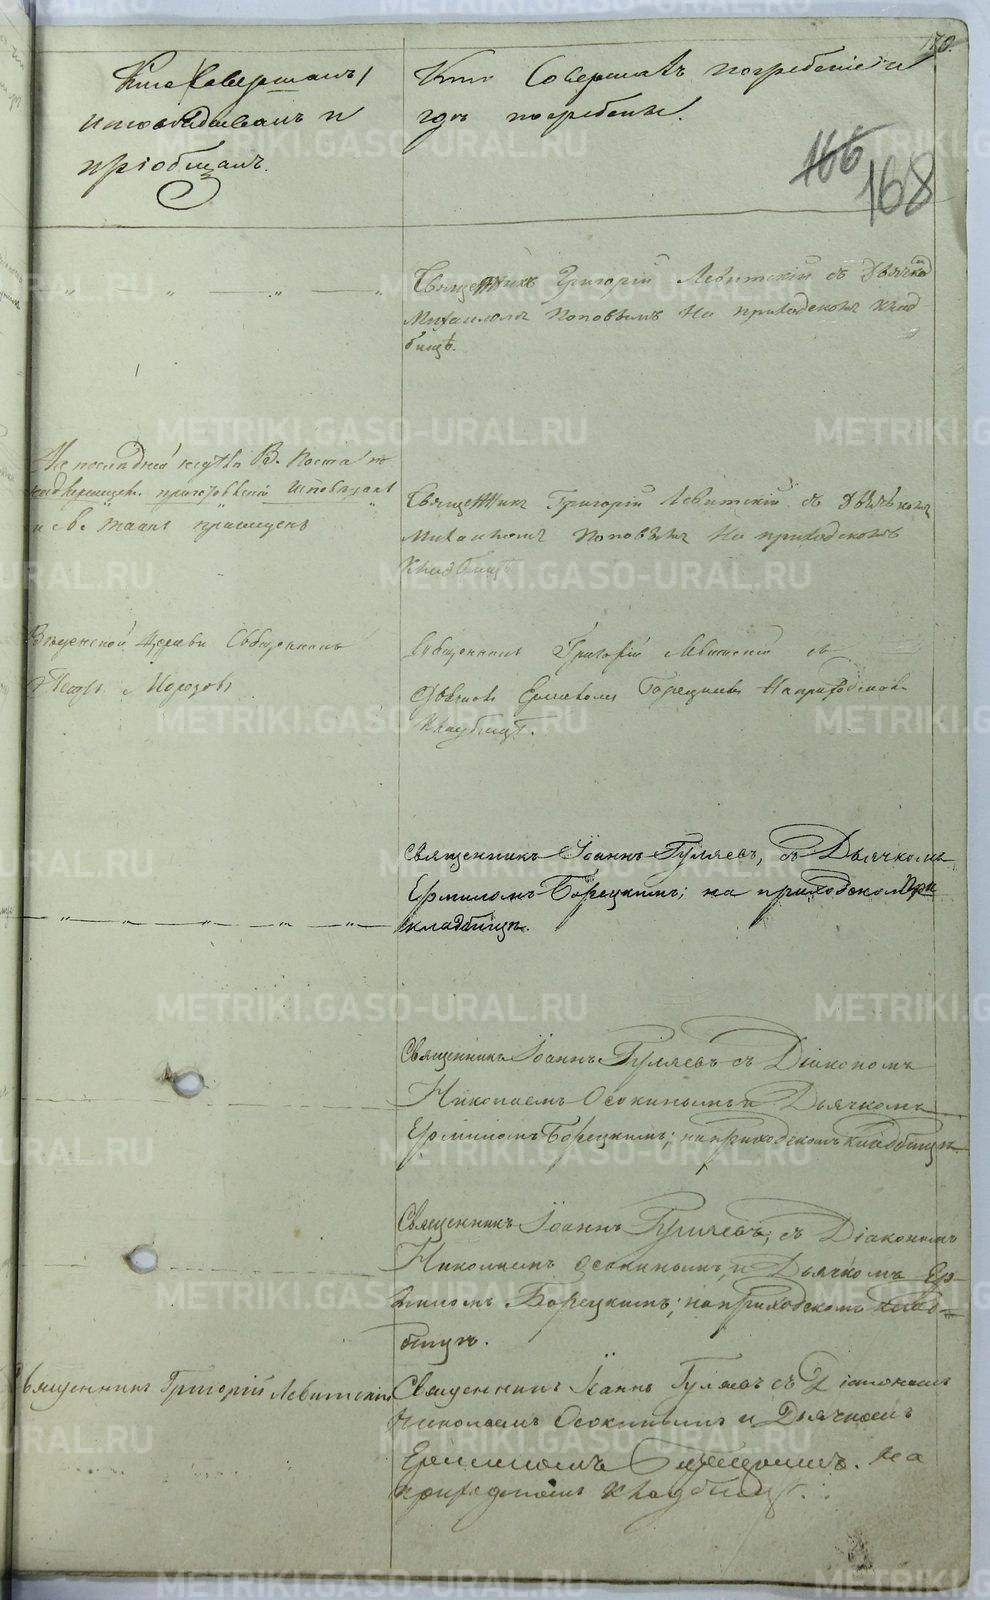 170.
Кто Совершалъ
исповѣдывалъ и
пріобщалъ.
Кто Совершалъ погребеніе и
гдѣ погребены.
166
168
Священникъ Григорій Левитскій съ Дьячко
Михаиломъ Поповымъ На приходскомъ клад
бищѣ.
На последней недѣли В. Поста
исповѣданъ
и Св. таинъ
Священникъ Григорій Левитскій съ Дьячкомъ
Михаиломъ Поповымъ На приходскомъ
Кладбищѣ
Введенской Церкви Священникъ
Петръ Морозовъ
Священникъ Григорій Левитскій съ
Дьячкомъ Ермиломъ Борецкимъ На приходскомъ
Кладбищѣ.
Священникъ Іоаннъ Гуляевъ, съ Дьячкомъ
Ермиломъ Борецкимъ; на приходскомъ
кладбищѣ.
Священникъ Іоаннъ Гуляевъ съ Діакономъ
Николаемъ Осокинымъ и Дьячкомъ
Ермиломъ Борецкимъ; на приходскомъ кладбищѣ
Священникъ Іоаннъ Гуляевъ, съ Діакономъ
Николаемъ Осокинымъ, и Дьячкомъ Ер-
миломъ Борецкимъ; на приходскомъ клад-
бищѣ.
Священникъ Григорій Левитскій
Священникъ Іоаннъ Гуляевъ съ Діакономъ
Николаемъ Осокинымъ и Дьячкомъ
Ермиломъ Борецкимъ. На
приходскомъ кладбищѣ.
METRIKI.GASO-URAL.RU